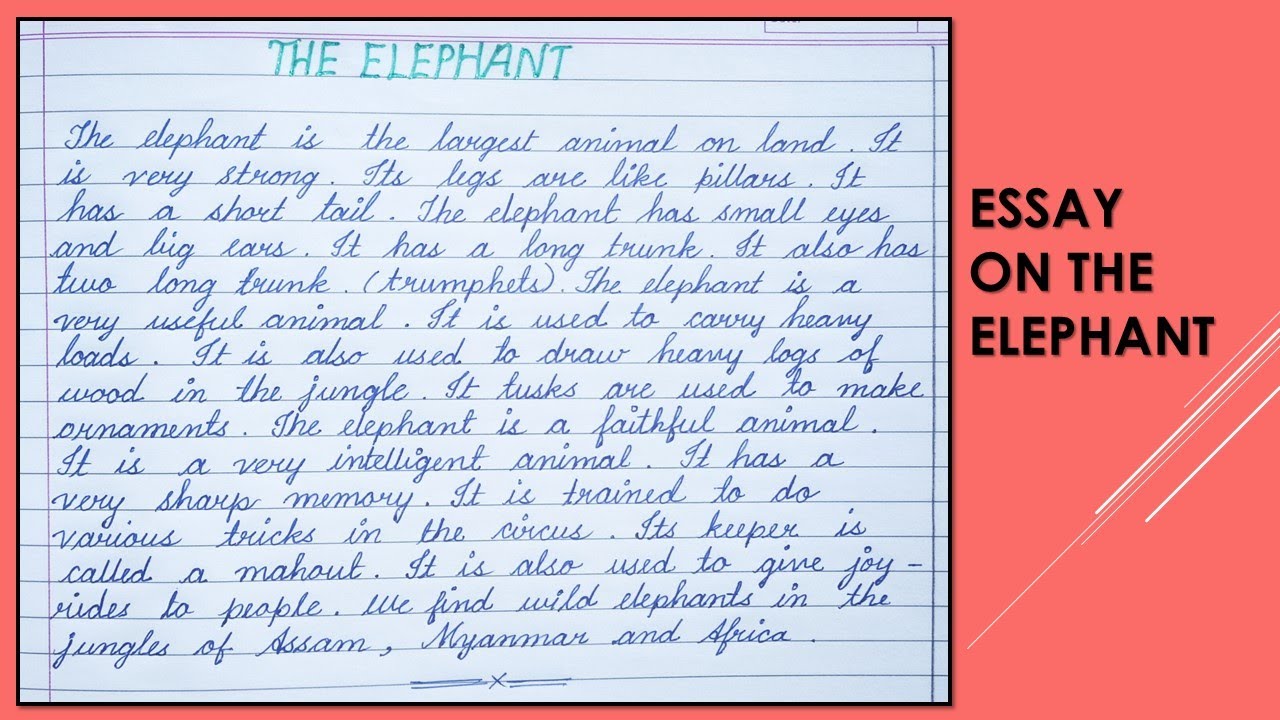 THE ELEPHANT
The elephant is the largest animal on land. It
is very strong. Its legs are like pillars. It
has a short tail. The elephant has small eyes
and big ears. It has a long trunk. It also has
two long trunk. (trumphets). The elephant is a
very useful animal. It is used to carry heavy
loads. It is also used to draw heavy logs of
wood in the jungle. It tusks are used to make
ornaments. The elephant is a faithful animal.
It is a very intelligent animal. It has a
very sharp memory. It is trained to do
various tricks in the circus. Its keeper is
called a mahout. It is also used to give joy-
rides to people. We find wild elephants in the
jungles of Assam, Myanmar and Africa.
ESSAY
ON THE
ELEPHANT